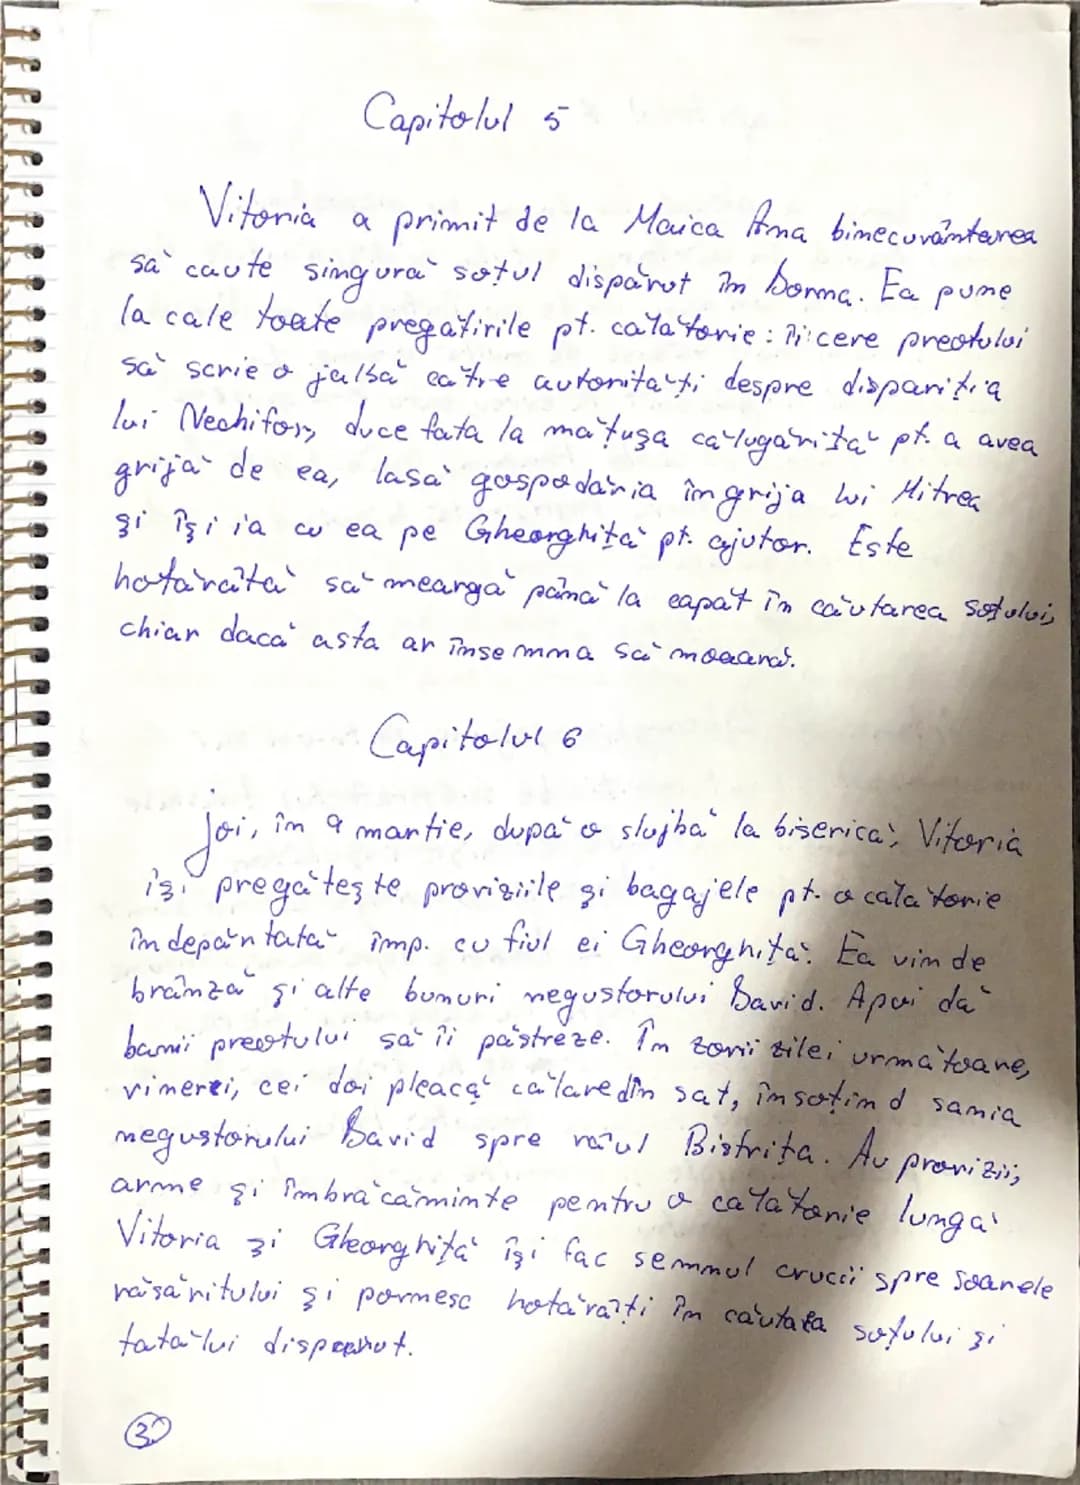 Capitolul 5
Vitoria a primit de la Maica Ana binecuvântarea
să caute singură soțul dispărut în Dorna. Ea pune
la cale toate pregătirile pt. călătorie: îi cere preotului
să scrie o jalbă către autorități despre dispariția
lui Nechifor, duce fata la mătușa călugăriță pt. a avea
grijă de ea, lasă gospodăria în grija lui Mitrea
și își ia cu ea pe Gheorghiță pt. ajutor. Este
hotărâtă să meargă până la capăt în căutarea soțului,
chiar dacă asta ar însemna să moară.
Capitolul 6
Joi, în 9 martie, după o slujbă la biserică, Vitoria
își pregătește proviziile și bagajele pt. o călătorie
îndepărtată împ. cu fiul ei Gheorghiță. Ea vinde
brânză și alte bunuri negustorului David. Apoi dă
banii preotului să îi păstreze. În zorii zilei următoare,
vineri, cei doi pleacă călare din sat, însoțind sania
negustorului David spre râul Bistrița. Au provizii,
arme și îmbrăcăminte pentru o călătorie lungă
Vitoria și Gheorghiță își fac semnul crucii spre soarele
răsăritului și pornesc hotărâți în căutarea soțului și
tatălui dispărut.
3